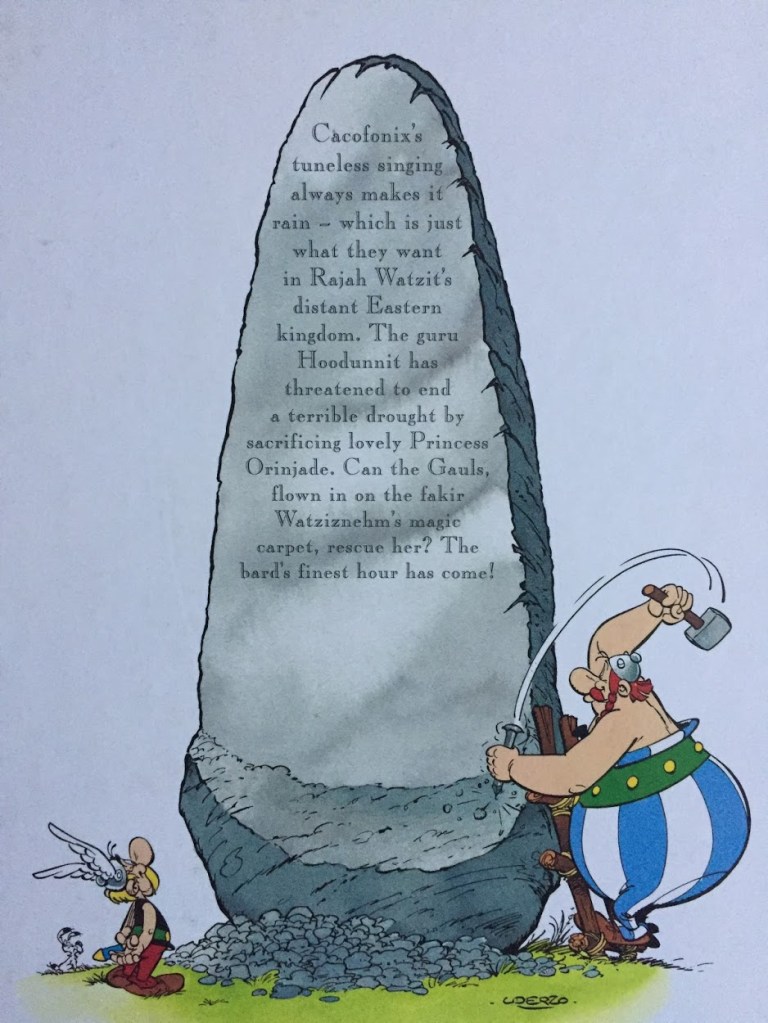 Cacofonix's
tuneless singing
always makes it
rain – which is just
what they want
in Rajah Watzit's
distant Eastern
kingdom. The guru
Hoodunnit has
threatened to end
a terrible drought by
sacrificing lovely Princess
Orinjade. Can the Gauls,
flown in on the fakir
Watziznehm's magic
carpet, rescue her? The
bard's finest hour has come!
UDERZO